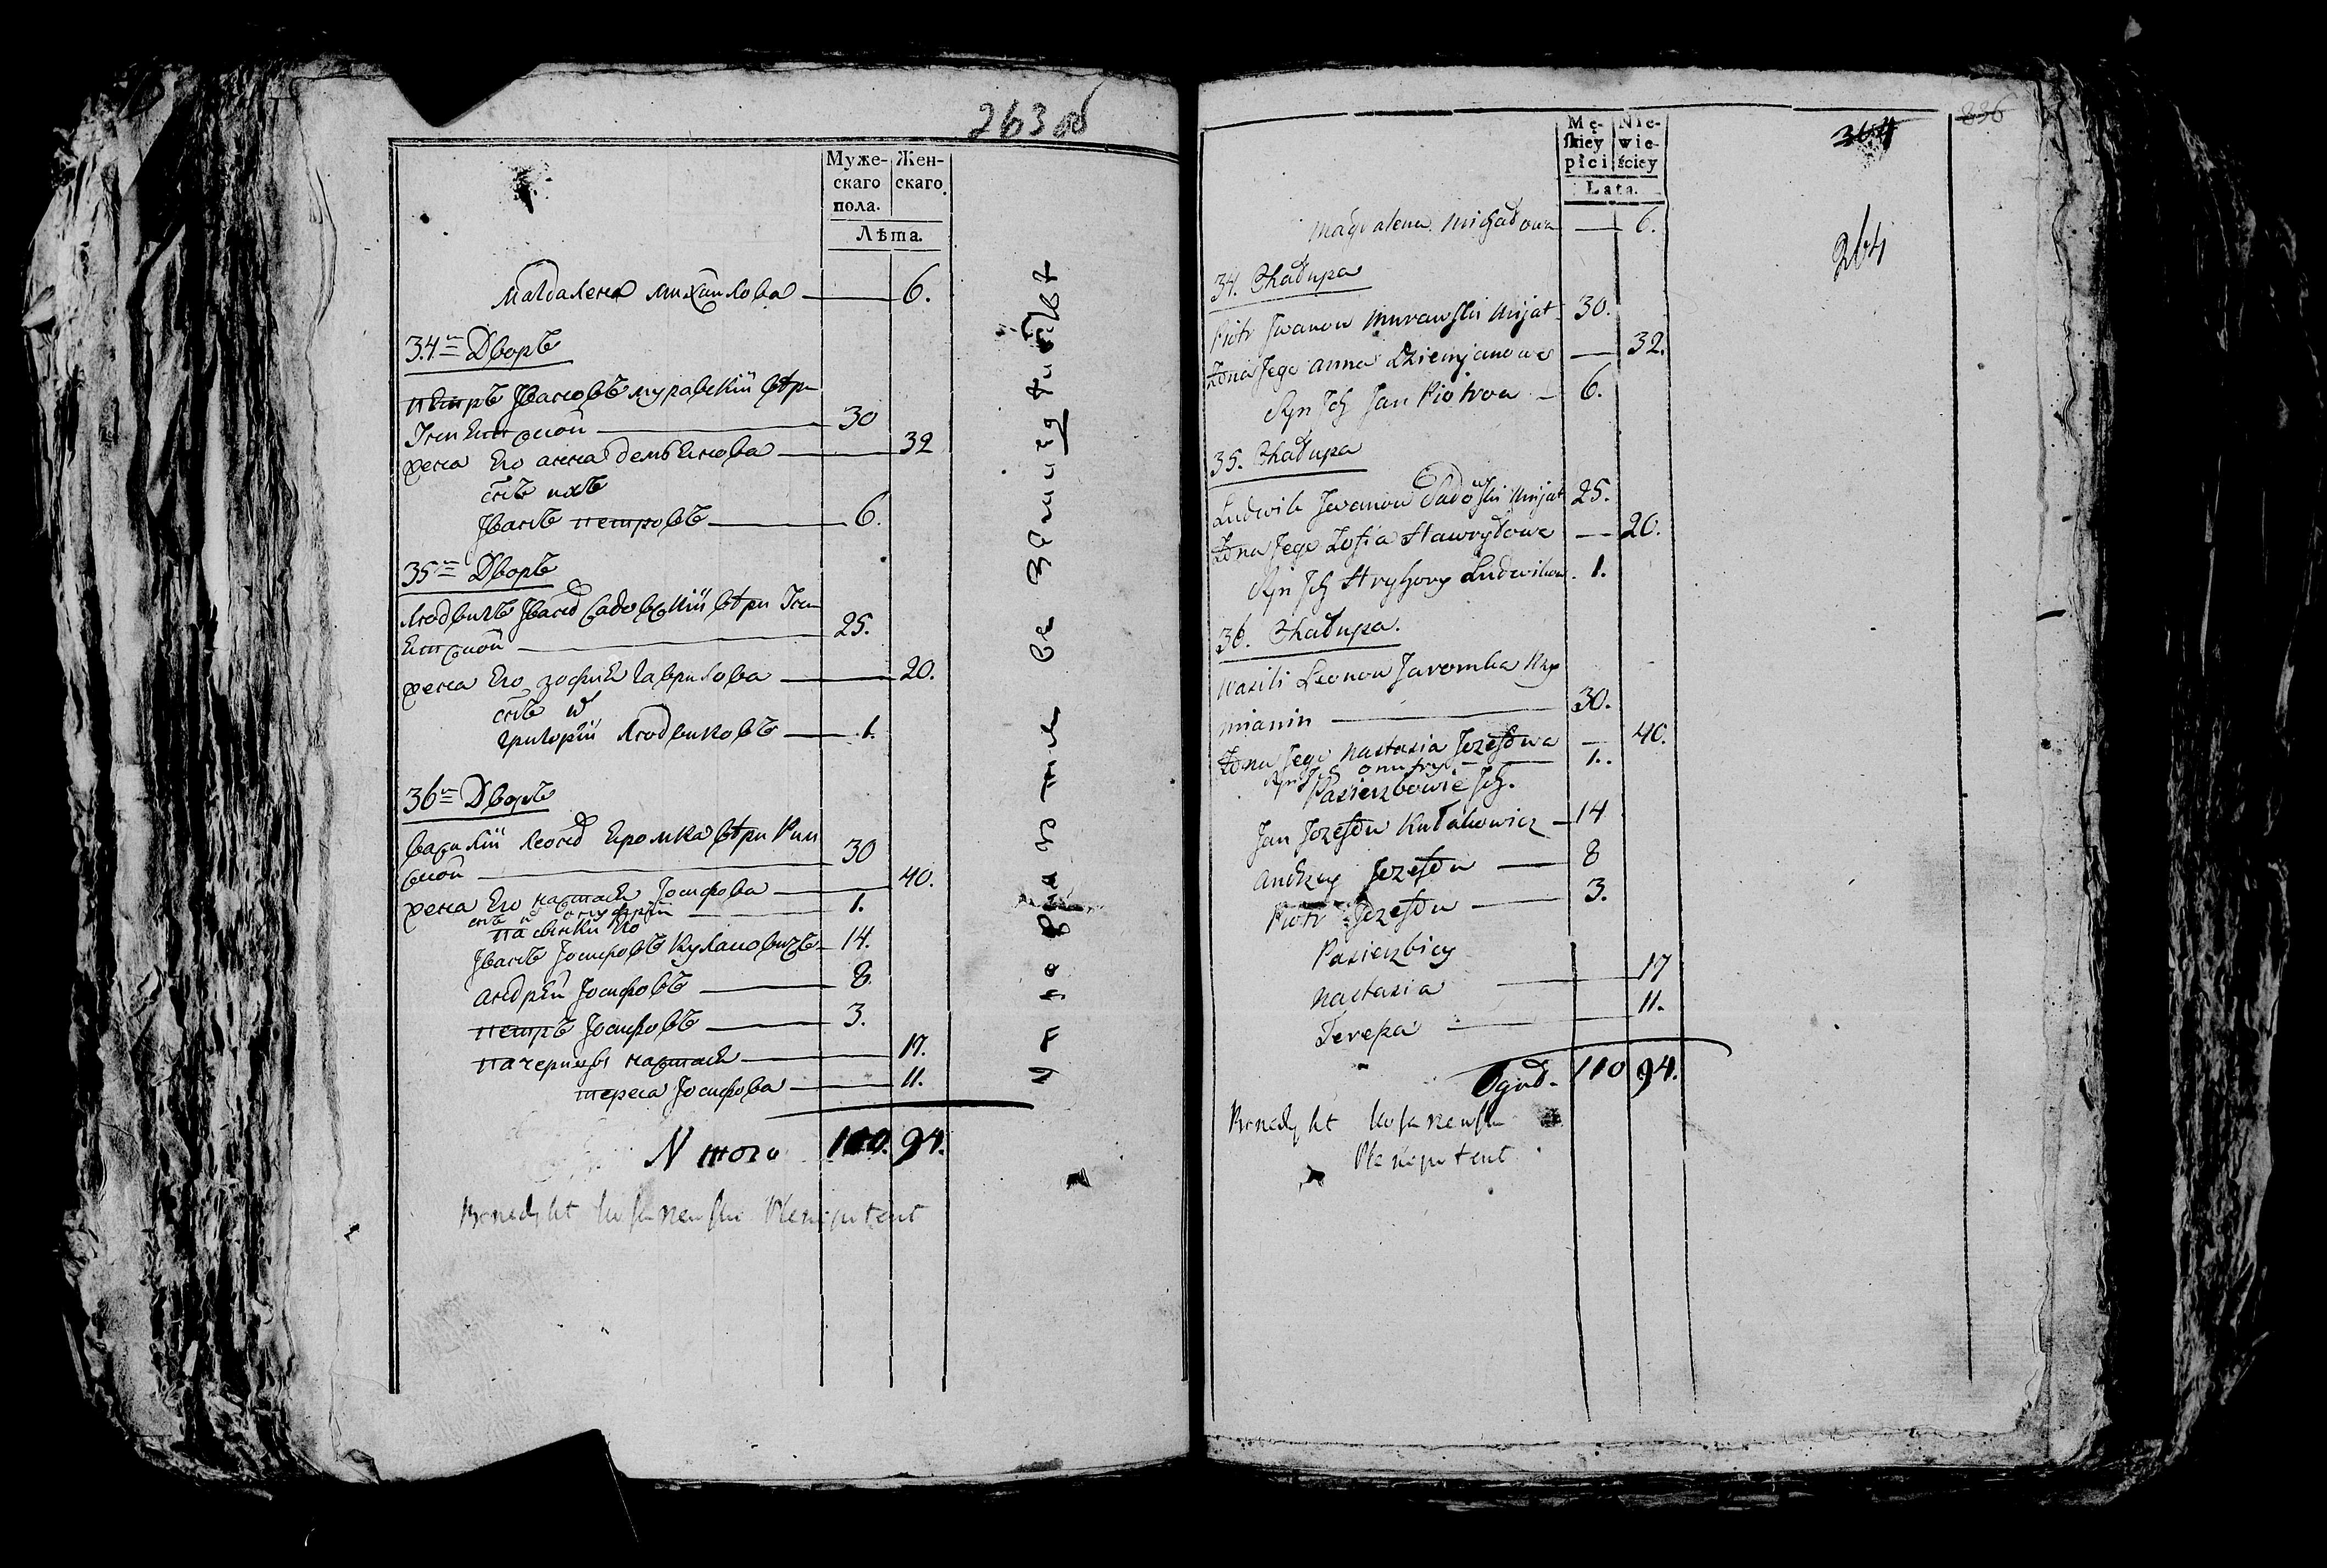 263 об
Муже-
скаго
пола.
Жен-
скаго
Лѣта.
Магдалена Михайлова — 6.
34й Дворъ
Петръ Ивановъ Муравскій вѣри
Уніятской — 30
жена Его Анна Демьянова — 32
сынъ ихъ
Иванъ Петровъ — 6.
35й Дворъ
Людвикъ Иванов Садовскій вѣры Уні
ятской — 25.
жена Его Зофия Гаврилова — 20.
сынъ их
Григорій Людвиковъ — 1.
36й Дворъ
Василій Леонов Яромка вѣри Рим
ской — 30
жена Его Настасия Іосифова — 40.
сынъ их Онуфрій — 1.
пасынки Его
Иванъ Іосифовъ Кулаковичъ — 14.
Андрей Іосифовъ — 8.
Петръ Іосифовъ — 3.
Пачерицы Настасия — 17.
Тереса Іосифова — 11.
Итого 110. 94.
Benedykt Plenipotent
Mę-
skiey
płci
Nie-
wie-
ściey
Lata.
364
836
264
Magdalena Michałowa — 6.
34. Chałupa
Piotr Iwanow Murawski Unijat 30.
Żona Jego Anna Dziemjanowa — 32.
Syn Ich Jan Piotrow — 6.
35. Chałupa
Ludwik Iwanow Sadowski Unijat 25.
Żona Jego Zofia Hawryłowa — 20.
Syn Ich Hryhory Ludwikow. 1.
36. Chałupa.
Wasili Leonow Jaromka Rzy
mianin — 30.
Żona Jego Nastasia Jozefowa — 40.
Syn Ich Onufry — 1.
Pasierzbowie Ich.
Jan Jozefow Kułakowicz — 14
Andrzey Jozefow — 8
Piotr Jozefow — 3.
Pasierzbicy
Nastasia — 17
Teresa — 11.
Ogół. 110 94.
Benedykt
Plenipotent